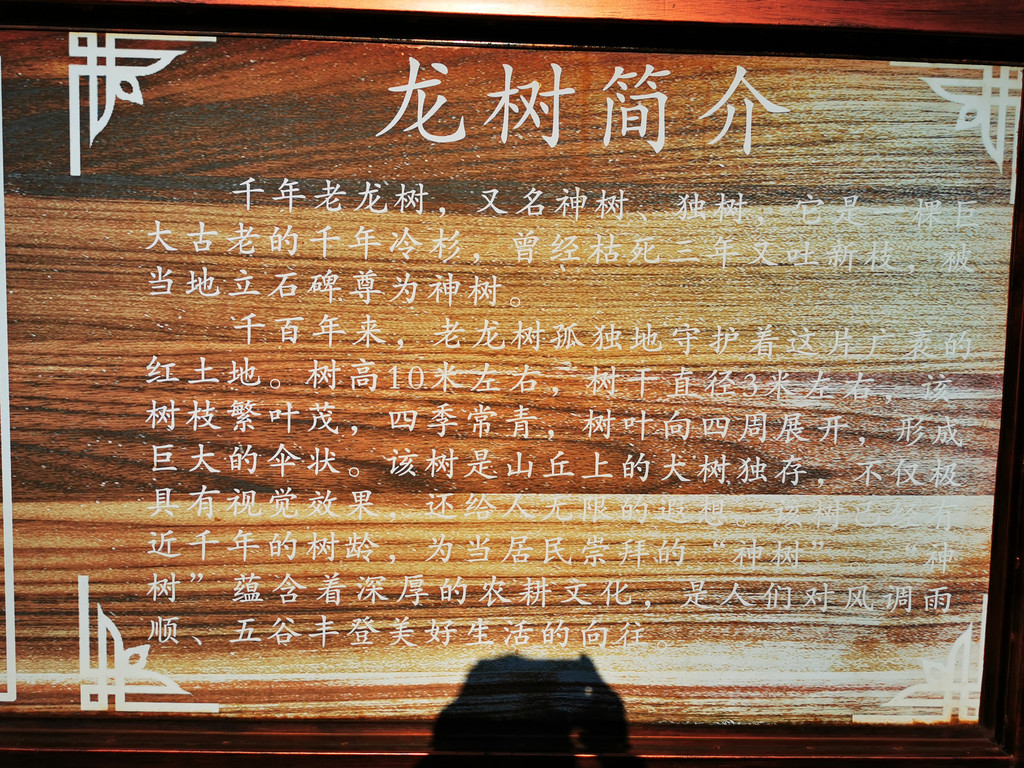 龙树简介
千年老龙树，又名神树、独树，它是一棵巨
大古老的千年冷杉，曾经枯死三年又吐新枝，被
当地立石碑尊为神树。
千百年来，老龙树孤独地守护着这片广袤的
红土地。树高10米左右，树干直径3米左右，该
树枝繁叶茂，四季常青，树叶向四周展开，形成
巨大的伞状。该树是山丘上的犬树独存，不仅极
具有视觉效果，还给人无限的遐想。该树已经有
近千年的树龄，为当居民崇拜的“神树”，“神
树”蕴含着深厚的农耕文化，是人们对风调雨
顺、五谷丰登美好生活的向往。